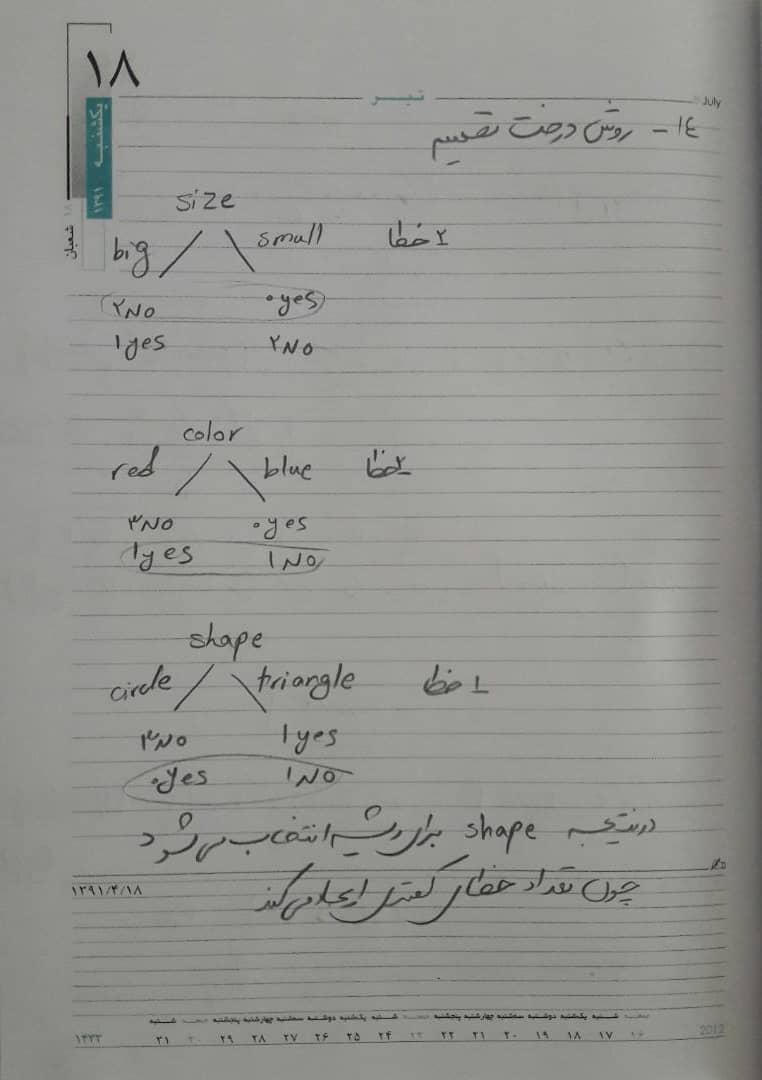 ۱۸
تیر
July
یکشنبه
۱۳۹۱
۱۸ شعبان
۱۴ - روش درخت تقسیم
size
big small ۲ خطا
۲NO ۰yes
۱yes ۲NO
color
red blue ۲ خطا
۳NO ۰yes
۱yes ۱NO
shape
circle triangle ۱ خطا
۳NO ۱yes
۰yes ۱NO
در نتیجه shape برای ریشه انتخاب می شود
۱۳۹۱/۴/۱۸
چون تعداد خطای کمتری ایجاد می کند
شنبه یکشنبه دوشنبه سه‌شنبه چهارشنبه پنجشنبه جمعه شنبه یکشنبه دوشنبه سه‌شنبه چهارشنبه پنجشنبه جمعه شنبه
۱۶ ۱۷ ۱۸ ۱۹ ۲۰ ۲۱ ۲۲ ۲۳ ۲۴ ۲۵ ۲۶ ۲۷ ۲۸ ۲۹ ۳۰ ۳۱
2012
۱۴۳۳